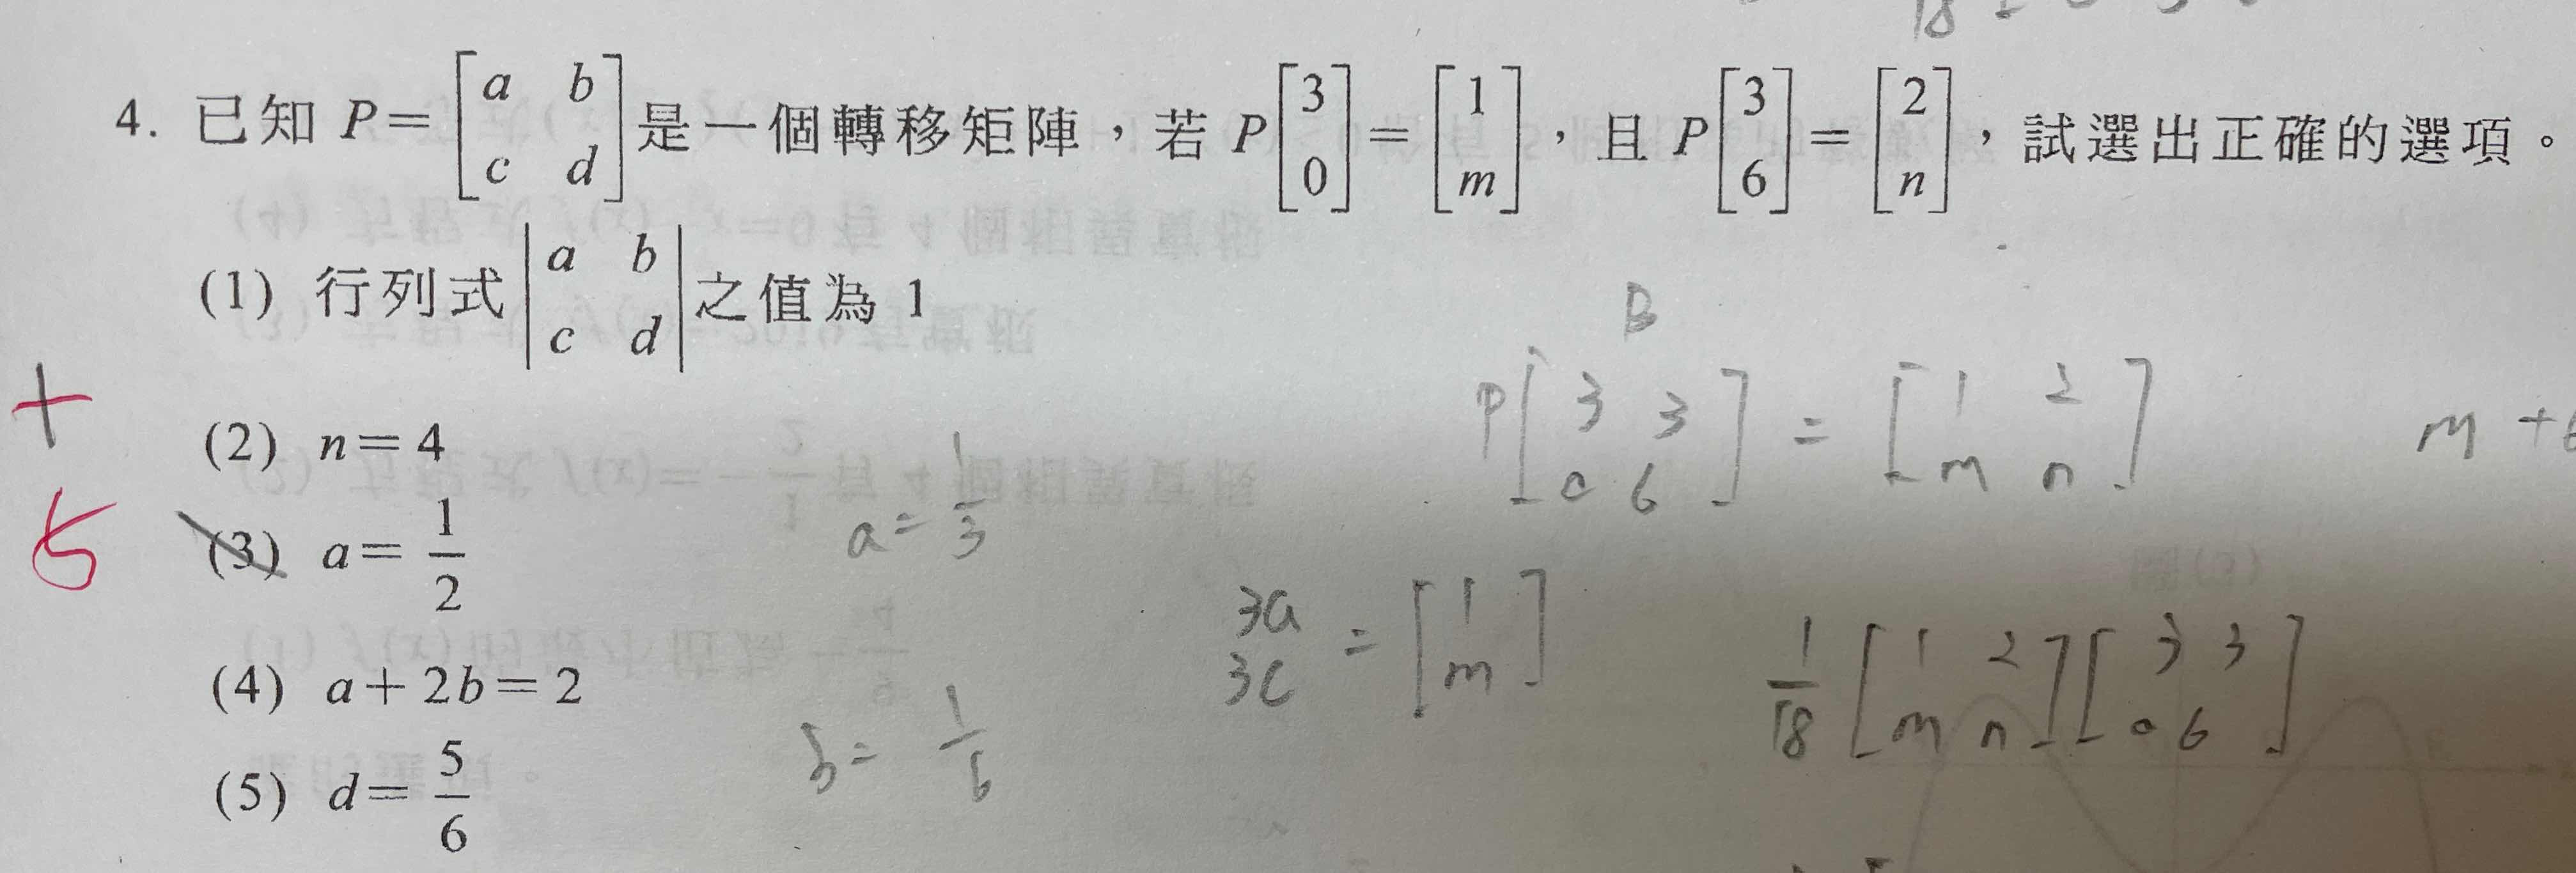 4. 已知 P=[a b c d]是一個轉移矩陣，若 P[3 0]=[1 m]，且 P[3 6]=[2 n]，試選出正確的選項。
(1) 行列式|a b c d|之值為 1
(2) n=4
(3) a=1/2
(4) a+2b=2
(5) d=5/6
+
5
a=1/3
b=1/6
B
P[3 3 0 6]=[1 2 m n]
m+6
3a 3c=[1 m]
1/18[1 2 m n][3 3 0 6]